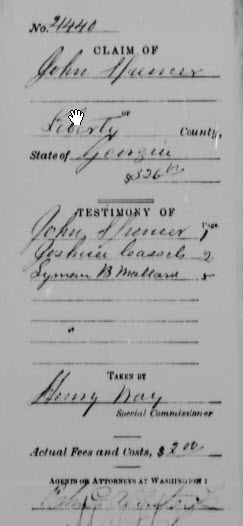 No. 21440
CLAIM OF
John Spencer
OF
Liberty County,
State of Georgia
$326 00
TESTIMONY OF
Page
John Spencer 1
Joshua Cassels 2
Lyman B Mallard 5
"
TAKEN BY
Henry Way
Special Commissioner
Actual Fees and Costs, $2 00
AGENTS OR ATTORNEYS AT WASHINGTON :